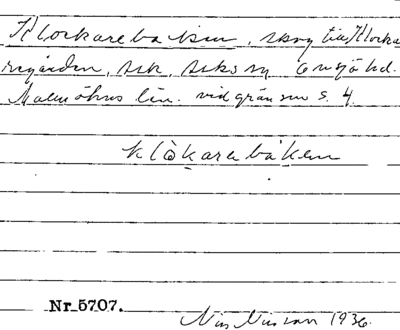 Klockarebacken, skog till Klocka
regården, sek, seks sn Onsjö hd.
Malmöhus län. vid gränsen S. 4.
klåkarebaken
Nr 5707.
Nils Nilsson 1936.